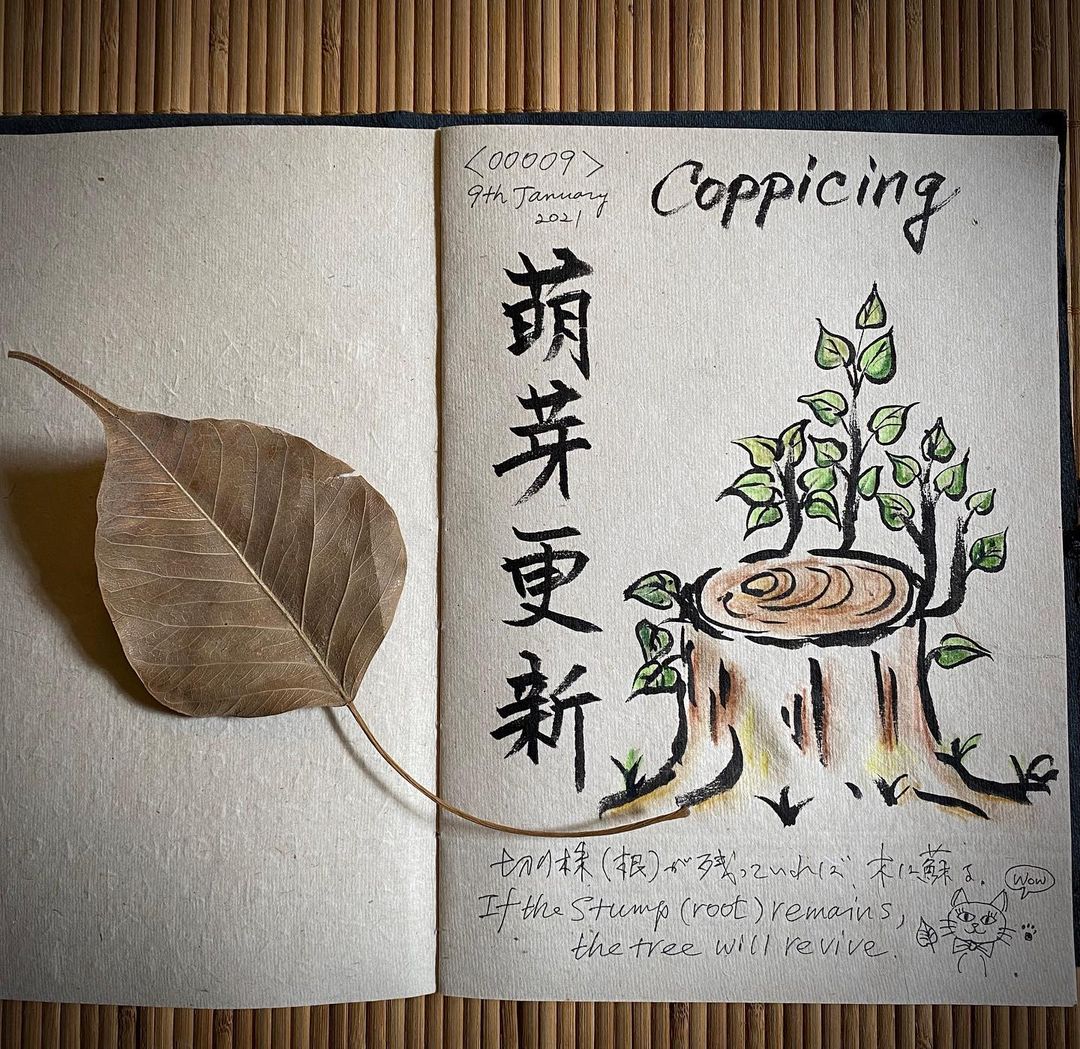 <00009>
9th January
2021
Coppicing
萌芽更新
切り株(根)が残っていれば、木は蘇る。
If the Stump (root) remains,
the tree will revive.
Wow